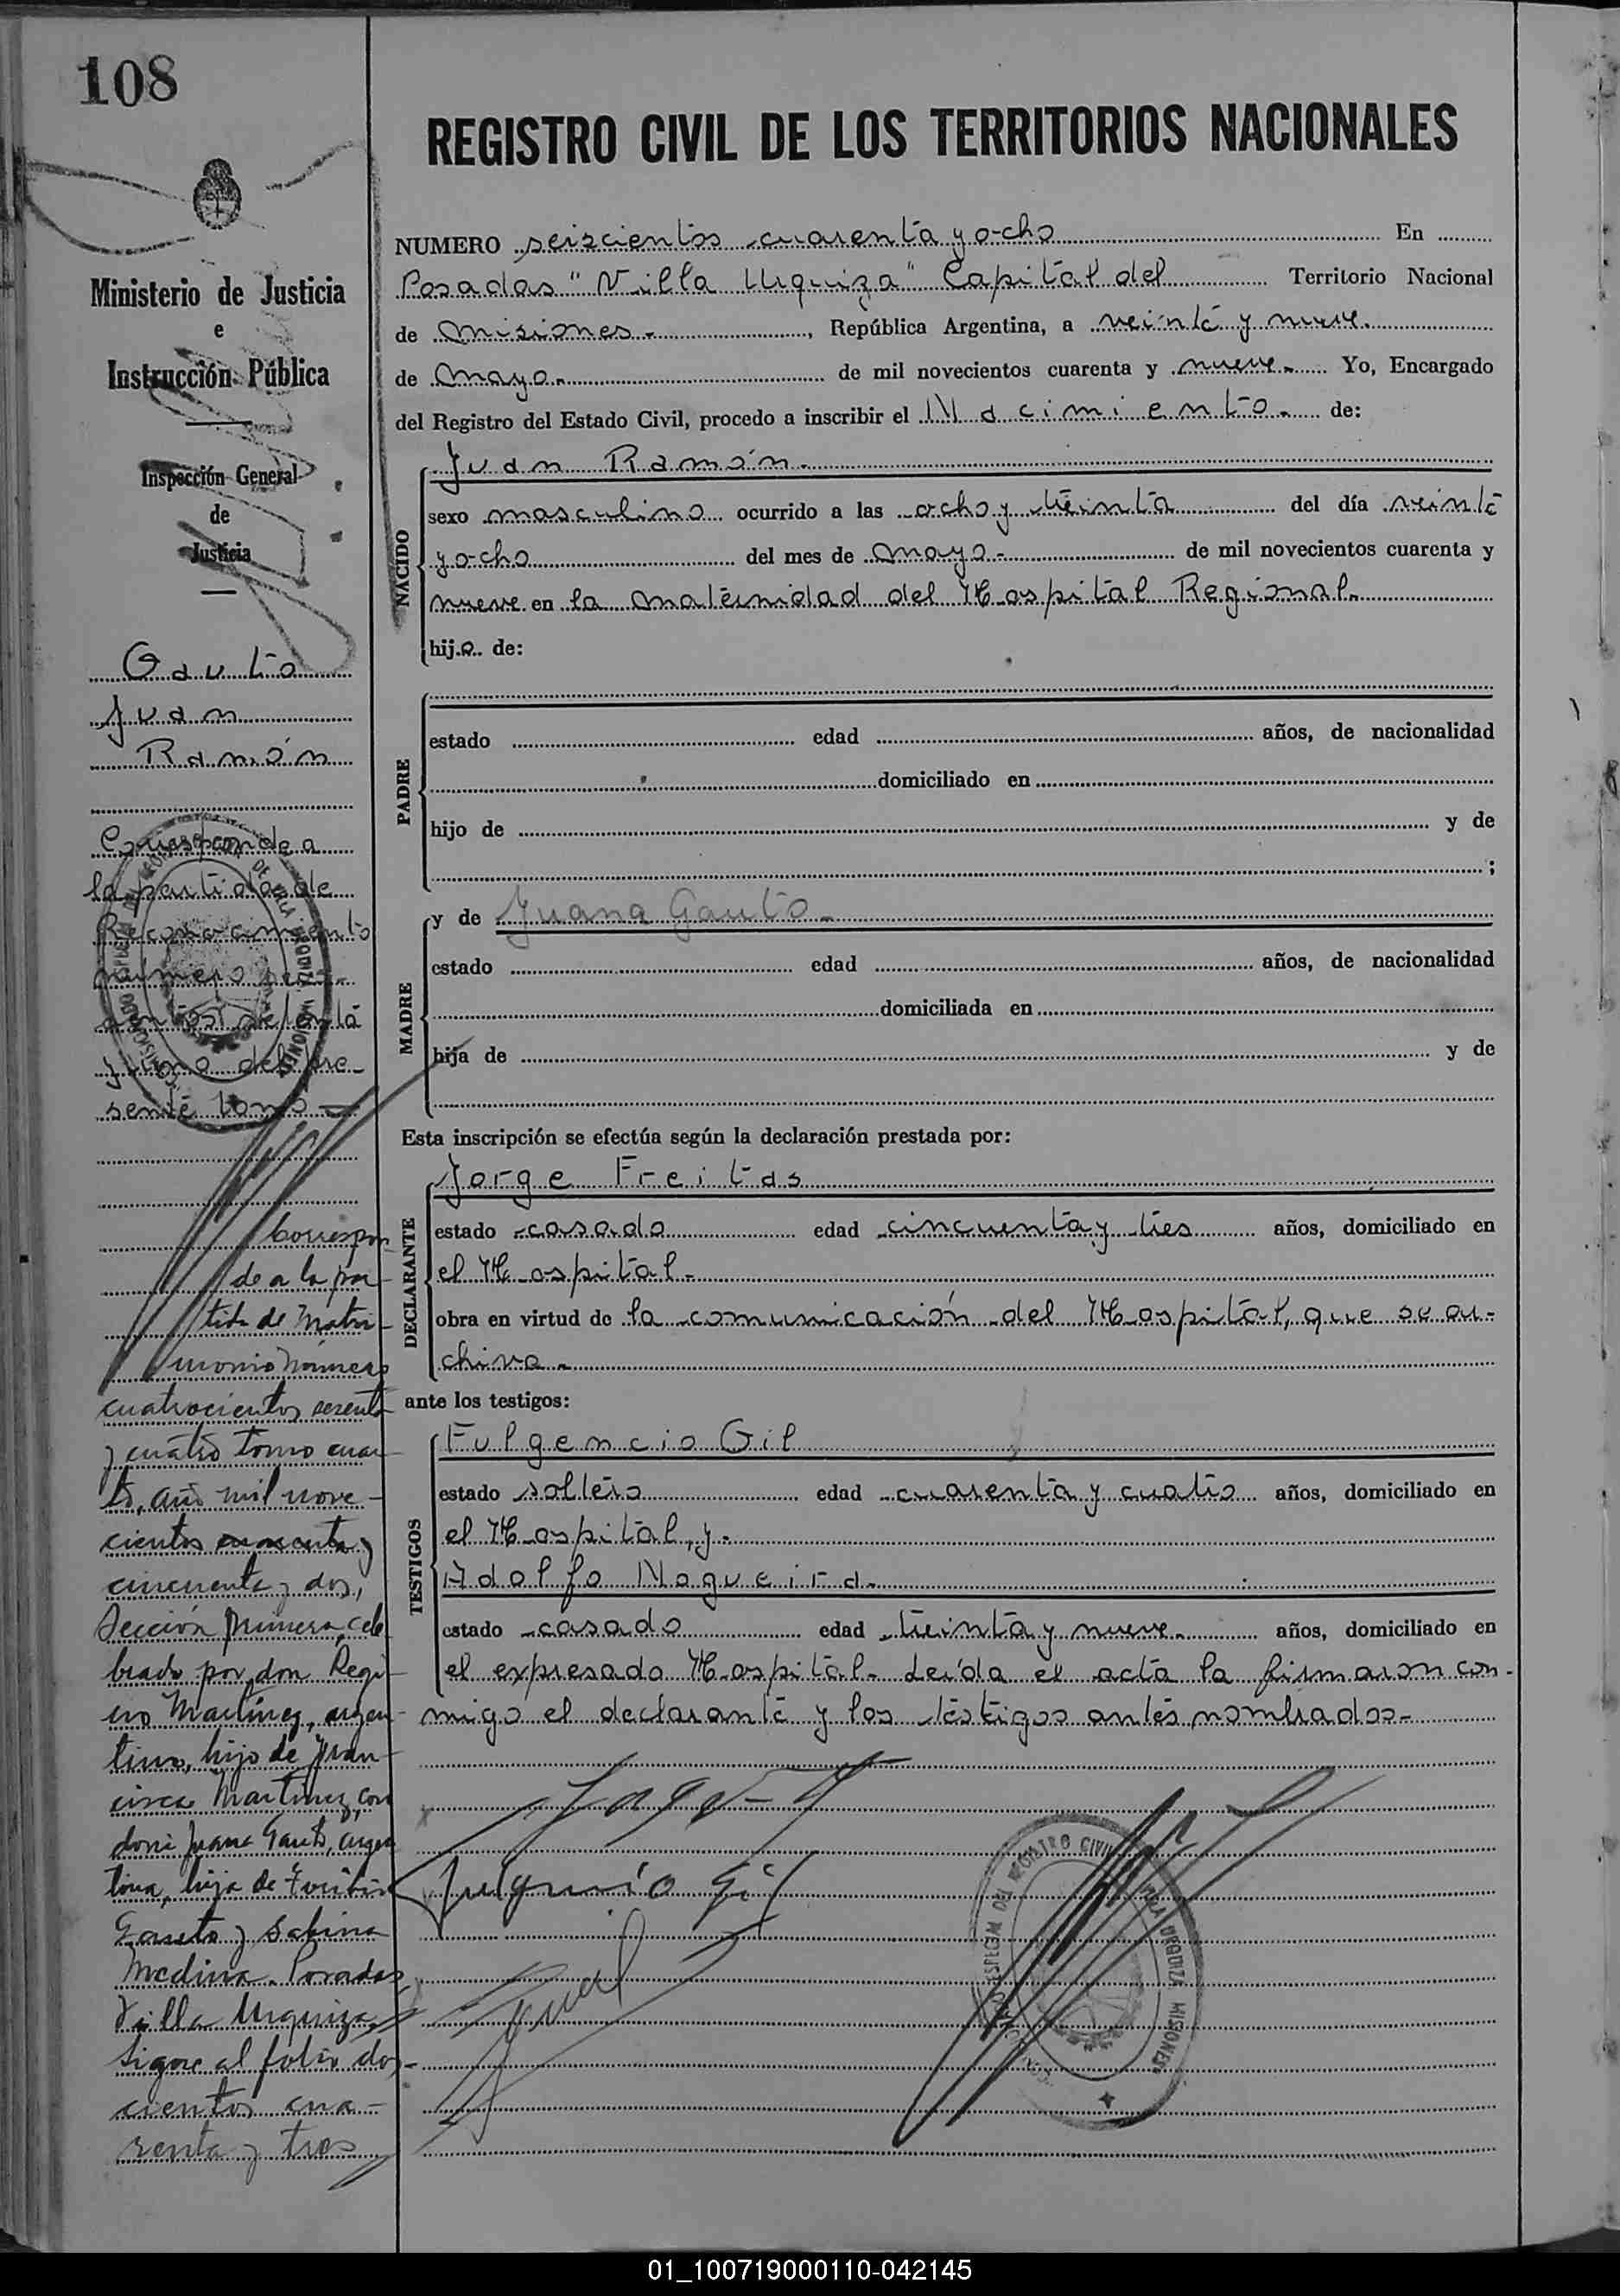 108
Ministerio de Justicia
e
Instrucción Pública
Inspección General
de
Justicia
Gauto
Juan
Ramón
Corresponde a
la partida de
Reconocimiento
número
setenta
y uno del pre-
sente tomo
Correspon
de a la par
tida de Matri
monio número
cuatrocientos sesenta
y cuatro tomo cuar
to, año mil nove
cientos cuarenta y
cincuenta y dos,
Sección primera cele
brado por don Regi
no Martínez, argen
tino, hijo de Fran
cisca Martínez, con
doña Juana Gauto, argen
tina, hija de
Gauto y Sabina
Medina. Posadas
Villa Urquiza
Sigue al folio dos-
cientos cua-
renta y tres
REGISTRO CIVIL DE LOS TERRITORIOS NACIONALES
NUMERO seiscientos cuarenta y ocho En
Posadas "Villa Urquiza" Capital del Territorio Nacional
de Misiones.- , República Argentina, a veinte y nueve.
de Mayo.- de mil novecientos cuarenta y nueve.- Yo, Encargado
del Registro del Estado Civil, procedo a inscribir el Nacimiento.- de:
NACIDO
Juan Ramón.
sexo masculino ocurrido a las ocho y treinta del día veinte
y ocho del mes de Mayo.- de mil novecientos cuarenta y
nueve en la Maternidad del Hospital Regional.
hijo de:
PADRE
estado edad años, de nacionalidad
domiciliado en
hijo de y de
;
MADRE
y de Juana Gauto.-
estado edad años, de nacionalidad
domiciliada en
hija de y de
Esta inscripción se efectúa según la declaración prestada por:
DECLARANTE
Jorge Freitas
estado casado edad cincuenta y tres años, domiciliado en
el Hospital.-
obra en virtud de la comunicación del Hospital, que se ar-
chiva.-
ante los testigos:
TESTIGOS
Fulgencio Gil
estado soltero edad cuarenta y cuatro años, domiciliado en
el Hospital, y.-
Adolfo Nogueira.
estado casado edad treinta y nueve.- años, domiciliado en
el expresado Hospital.- Leída el acta la firmaron con-
migo el declarante y los testigos antes nombrados.-
Fulgencio Gil
REGISTRO CIVIL
VILLA URQUIZA MISIONES
01_100719000110-042145